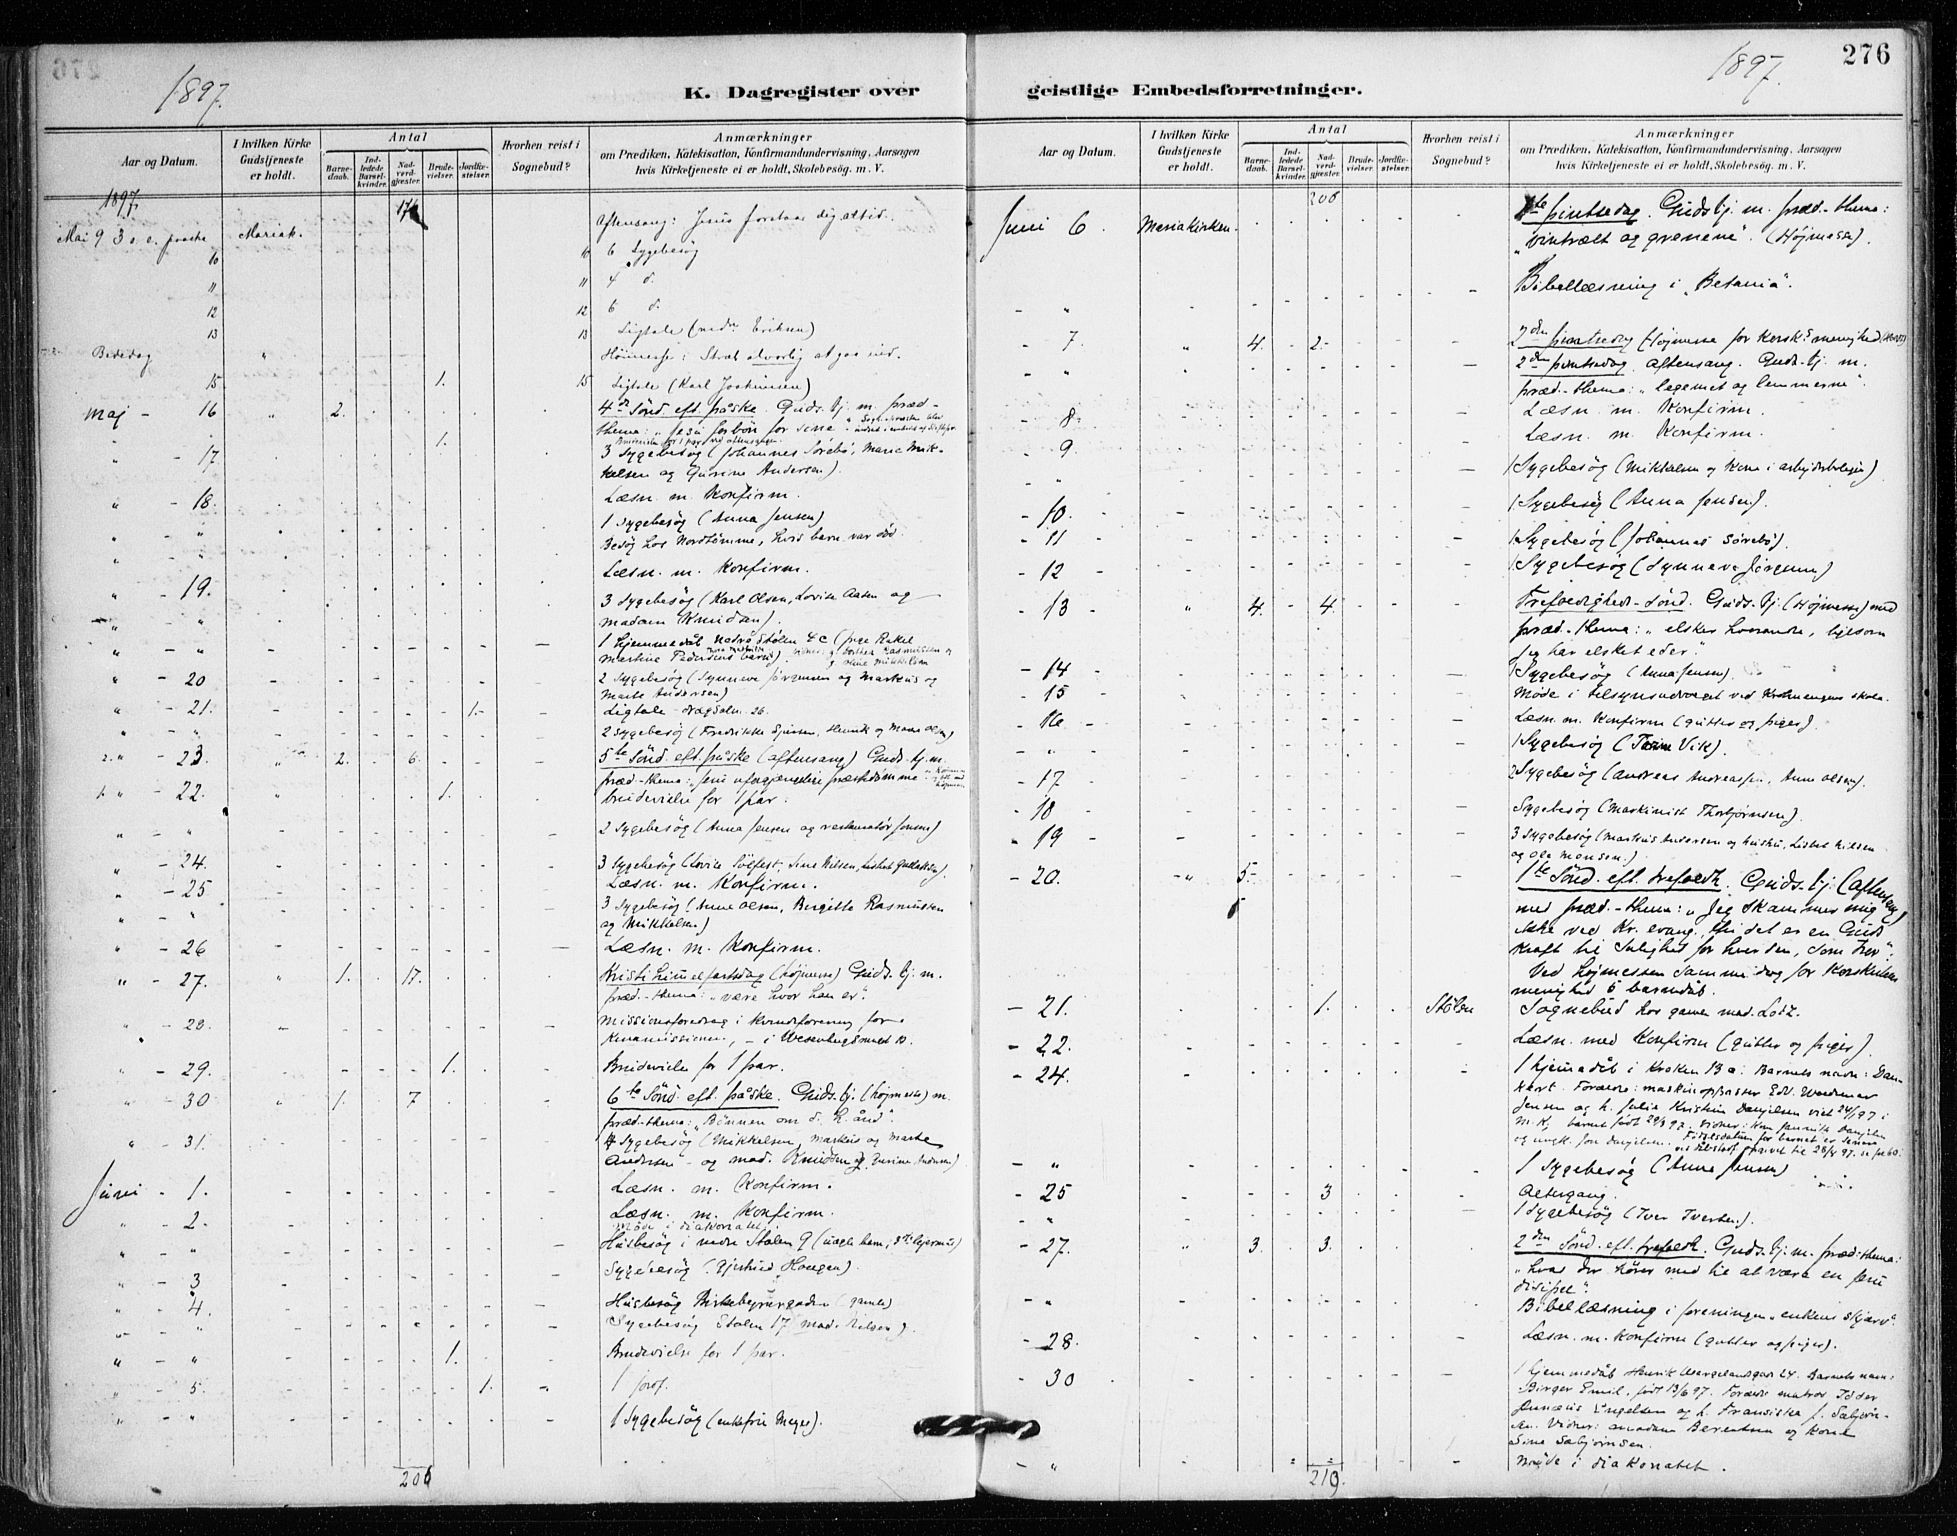 276
1897.
K. Dagregister over
Aar og Datum.
I hvilken Kirke Gudstjeneste er holdt.
Antal
Barnedaab.
Indledede Barselkvinder.
Nadverdgjæster.
Brudevielser.
Jordfæstelser.
Hvorhen reist i Sognebud?
Anmærkninger
om Prædiken, Katekisation, Konfirmandundervisning, Aarsagen
hvis Kirketjeneste ei er holdt, Skolebesøg. m. V.
1897.
Mai 9 3 s. e. paaske Mariak. Aftensang: Jesus
10 10 6 Sygebesøg
11 11 4 d.
12 12 6 d.
13 13 Ligtale (
Bededag " Høimesse:
15 1. 15 Ligtale (Karl Joakimsen)
Maj - 16 " 2. 4de Sönd. eft. påske. Guds.tj. m. præd-
thema: " Jesu forbön for sine
1.
" - 17. 3 Sygebesög (Johannes Sörebö, Marie Mik-
kelsen og Gurine Andersen).
Læsn. m. Konfirm.
" - 18. 1 Sygebesög (Anna Jensen)
" - " Besög hos Nordtömme, hvis barn var död.
Læsn. m. Konfirm.
" - 19. 3 Sygebesög (Karl Olsen, Lovise Aasen og
madam Knudsen).
" - " 1 Hjemmedåb Nedre Stölen 4c (
" - 20 2 Sygebesög (Synneve Jörgensen og Markus og
Marte Andersen)
" - 21. 1. Ligtale - Dræggsalm. 26.
" - " 2 Sygebesög (Fredrikke
" - 23. " 2. 6. 5te Sönd. eft. påske (aftensang) Guds.tj. m.
præd-thema: Jesu uforgjængelige præstedömme
" 22. " 1. brudevielse for 1 par.
" - " 2 Sygebesög (Anna Jensen og restauratör Jensen)
" - 24. 3 Sygebesög (
Læsn. m. Konfirm.
" - 25 3 Sygebesög (Anne Olsen, Birgitte Rasmussen
og Mikkelsen)
" - 26 Læsn. m. Konfirm.
" - 27. " 1. 17. Kristi himmelfartsdag (höjmesse) Guds.tj. m.
præd.-thema: "være hvor han er".
" - 28. Missionsforedrag i Kvindeforening for
Kinamissionen, - i Wesenbergsmuet 10.
" - 29. 1. Brudevielse for 1 par.
" - 30 " 1. 7 6te Sönd. eft. påske. Guds.tj. (höjmesse) m.
præd-thema: "Bönnen om d. h. ånd".
" - 31. 4 Sygebesög (Mikkelsen, Markus og Marte
Andersen - og mad. Knudsen og Gurine Andersen)
Juni - 1. Læsn. m. Konfirm.
" - 2. Læsn. m. Konfirm.
Möde i diakonatet.
" - " Husbesög i nedre Stölen 9 (
" - 3 Sygebesög (Gjertrud Haugen).
" - 4. Husbesög Birkebeinergaden (gamle)
" - " Sygebesög Stölen 17 (mad. Nilsen).
" - " 1. Brudevielse for 1 par.
" - 5. 1. 1 Jordf.
" - " 1 Sygebesög (enkefru Meyer).
206
276
1897.
geistlige Embedsforretninger.
Aar og Datum.
I hvilken Kirke Gudstjeneste er holdt.
Antal
Barnedaab.
Indledede Barselkvinder.
Nadverdgjæster.
Brudevielser.
Jordfæstelser.
Hvorhen reist i Sognebud?
Anmærkninger
om Prædiken, Katekisation, Konfirmandundervisning, Aarsagen
hvis Kirketjeneste ei er holdt, Skolebesøg. m. V.
206
Juni 6 Mariakirken. 1ste pintsedag. Guds.tj. m. præd-thema:
"vintræet og grenene". (Höjmesse).
- " Bibellæsning i "Betania".
- 7. " 4. 2. 2den pintsedag (Höjmesse for Korsk.s menighed
- " 2den pintsedag. aftensang. Guds.tj. m.
præd-thema: "legemet og lemmerne".
- 8. Læsn. m. Konfirm.
- 9. Læsn. m. Konfirm.
- " 1 Sygebesög (Mikkelsen og Kone i arbejderboligen)
- 10. 1 Sygebesög (Anna Jensen).
- 11 1 Sygebesög (Johannes Sörebö).
- 12 1 Sygebesög (Synneve Jörgensen)
- 13 " 4. 4. Trefoldigheds-sönd. Guds.tj. (Höjmesse) med
præd-thema: "elsker hverandre, ligesom
jeg har elsket eder".
- 14 1 Sygebesög (Anna Jensen).
- 15 Möde i tilsynsudvalget ved Krohnengens skole.
- 16 Læsn. m. Konfirm (gutter og piger).
- " 1 Sygebesög (Vik).
- 17 2 Sygebesög (Andreas Andreassen, Anne Olsen).
- 18 Sygebesög (Maskinist Thorbjörnsen).
- 19 3 Sygebesög (Markus Andersen og hustru, Lisbet Nilsen
og Ole Monsen.)
- 20. " 5 1ste Sönd. eft. trefoldh. Guds.tj. (aftensang)
med præd.-thema: "Jeg skammer mig
ikke ved Kr. evang., thi det er en Guds
kraft til salighed for hver den, som tror".
Ved höjmessen samme dag for Korskirkens
menighed 5 barnedåb.
- 21. 1. Stölen Sognebud hos gamle mad. Lotz.
- 22. Læsn. med Konfirm (gutter og piger).
- 24. 1 hjemmedåb i Kroken 13a: Barnets navn: Dan-
kert. Forældre: maskinopasser Edv. Waldemar
Jensen og h. Julie Kristine Danjelsen viet 24/1 97 i
M.K., barnet födt
- " 1 Sygebesög (Anna Jensen)
- 25 3 Altergang.
- " 1 Sygebesög (Iver Iversen).
- 27. " 3. 3. 2den Sönd. eft. trefoldh. Guds.tj. m. præd.-thema:
"hvad der hörer med til at være en Jesu
discipel".
- " Bibellæsning i foreningen "enkens skjærv".
- 28. Læsn. m. Konfirm (gutter og piger).
- 30 1 hjemmedåb Henrik Wergelandsgade 24. Barnets navn:
Birger Emil, födt 13/6 97. Forældre matros Peder
Engelsen og h. Fransiska f. Sæbjörn-
sen. Vidner: madam Berentsen og kone
Sine Sæbjörnsen.
- " Möde i diakonatet.
219.